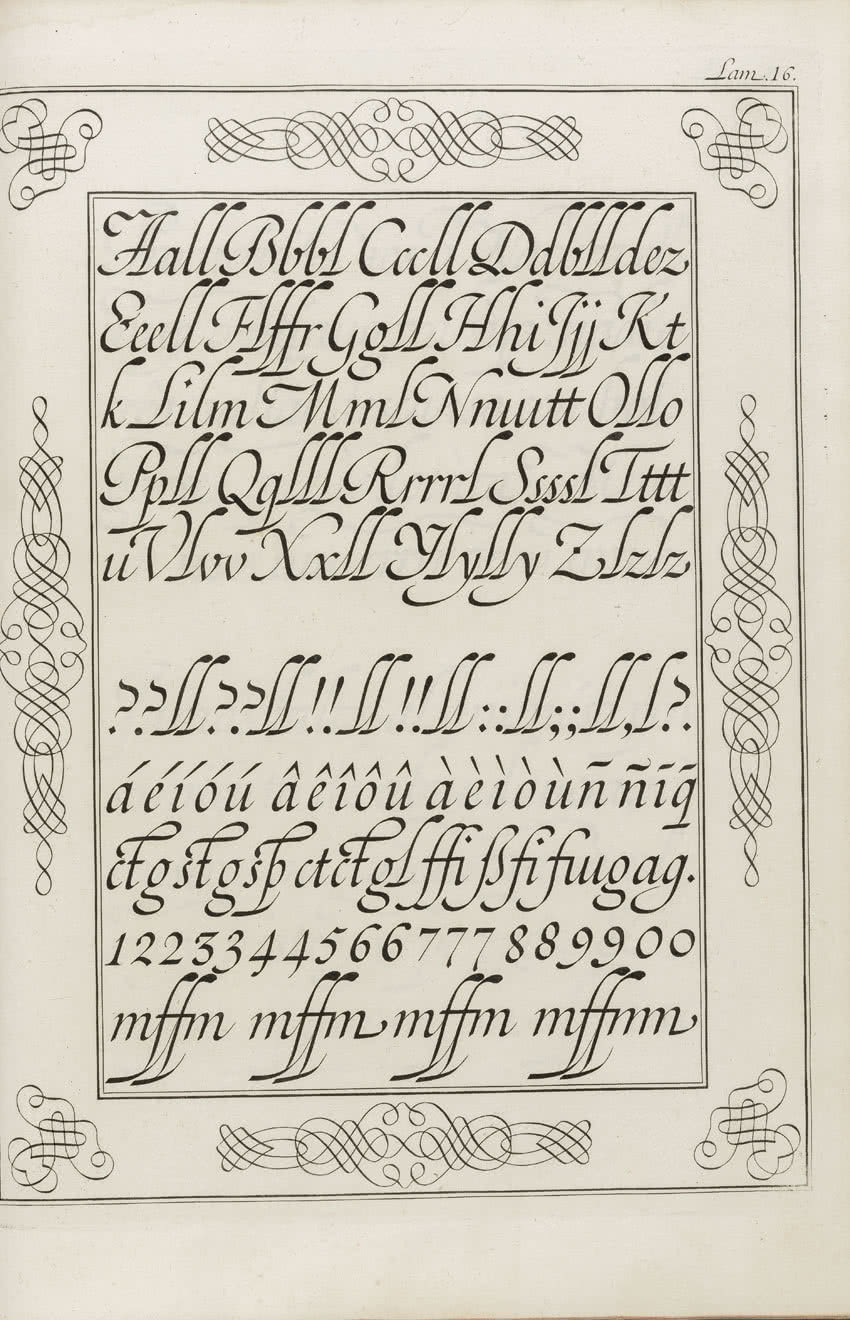 Lam. 16.
Aall Bbbl Cccll Ddbllldez
Eeell Flffr Ggll HhijJj Kt
k Lilm Mml Nnuutt Ollo
Ppll Qqlll Rrrrl Ssssl Tttt
u Vlvv Xxll Ylylly Zlzlz
??ll??ll!!ll!!ll::ll;;ll,l?.
áéíóú âêîôû àèìòùñ ñīq̃
1223344566777889900
mffm mffm mffm mffmm